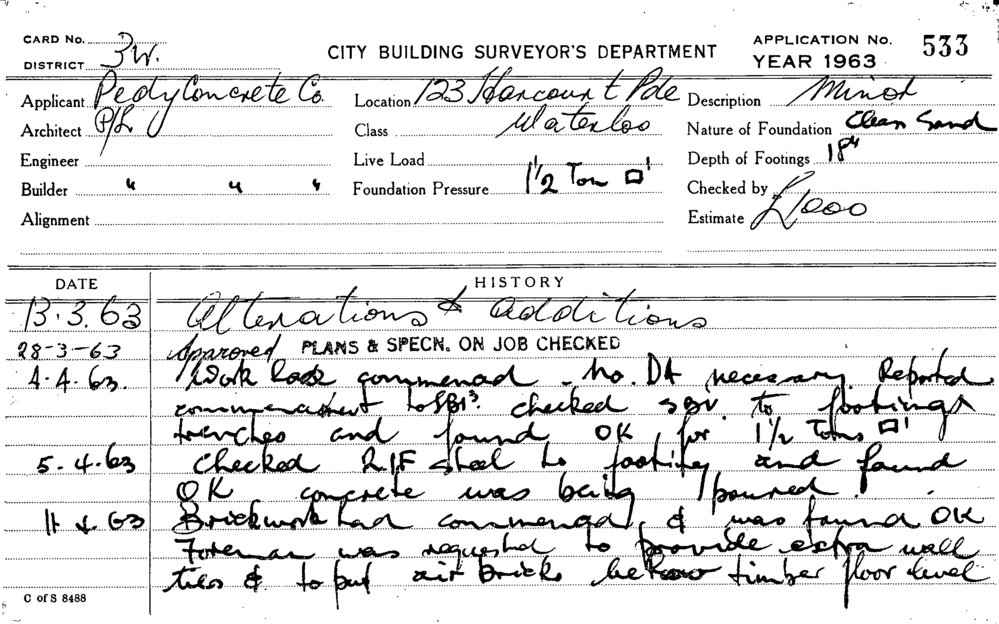 CARD No.
DISTRICT 3W.
CITY BUILDING SURVEYOR'S DEPARTMENT
APPLICATION No. 533
YEAR 1963
Applicant Pedy Concrete Co
Location 123 Harcourt Pde
Description Minor
Architect P/L
Class Waterloo
Nature of Foundation Clean Sand
Engineer
Live Load
Depth of Footings 18"
Builder " " "
Foundation Pressure 1½ Ton □'
Checked by
Alignment
Estimate £1000
DATE
HISTORY
13.3.63 Alterations & additions
28-3-63 Approved PLANS & SPECN. ON JOB CHECKED
4.4.63. Work had commenced - No. DA necessary. Reported
commencement to checked to footings
trenches and found OK for 1½ Tons □'
5.4.63 checked R/F steel to footing and found
OK concrete was being poured.
11 4.63 Brickwork had commenced & was found OK
Foreman was requested to provide extra wall
ties & to put air bricks below timber floor level
C of S 8488